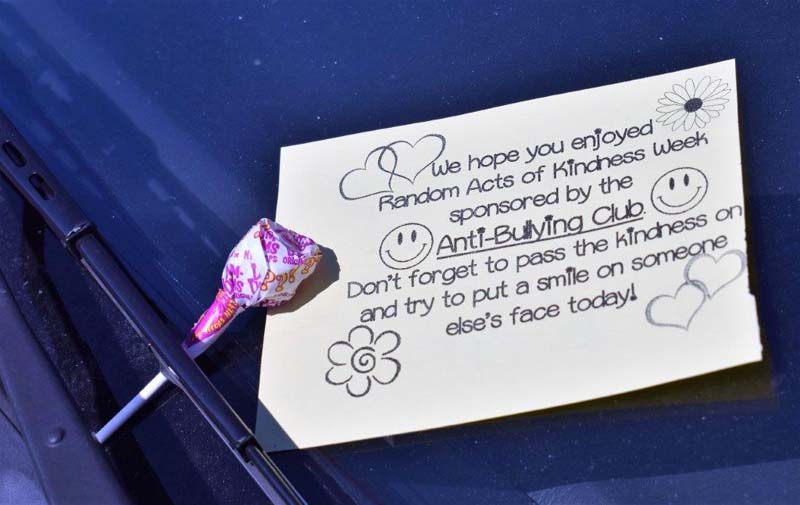 We hope you enjoyed
Random Acts of Kindness Week
sponsored by the
Anti-Bullying Club.
Don't forget to pass the kindness on
and try to put a smile on someone
else's face today!